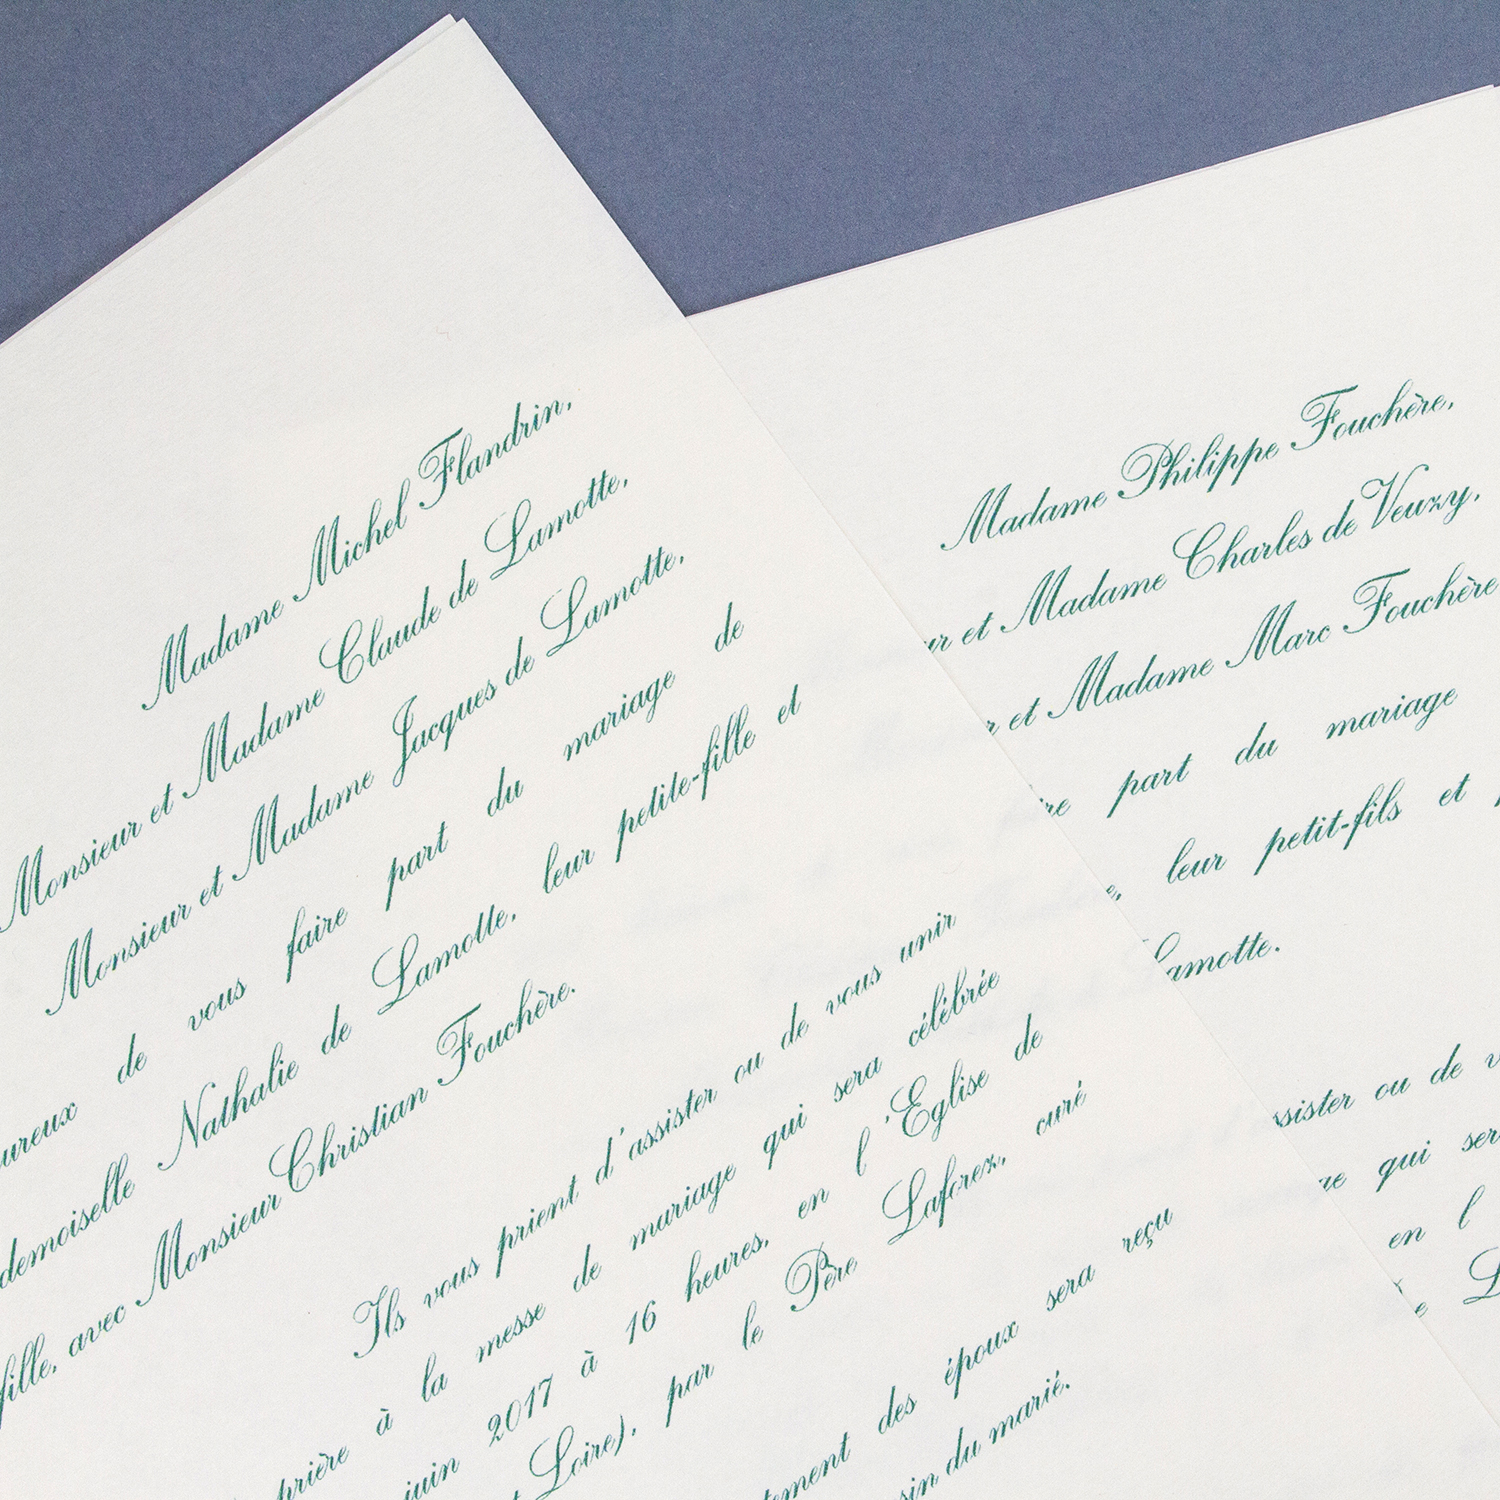 Madame Michel Flandrin,
Monsieur et Madame Claude de Lamotte,
Monsieur et Madame Jacques de Lamotte,
de vous faire part du mariage de
Nathalie de Lamotte, leur petite-fille et
fille, avec Monsieur Christian Fouchère.
Ils vous prient d'assister ou de vous unir
à la messe de mariage qui sera célébrée
juin 2017 à 16 heures, en l'Eglise de
Loire), par le Père Laforez, curé
des époux sera reçu
du marié.
Madame Philippe Fouchère,
et Madame Charles de Veuzy,
et Madame Marc Fouchère
part du mariage
leur petit-fils et
Lamotte.
ou de
qui
en l'